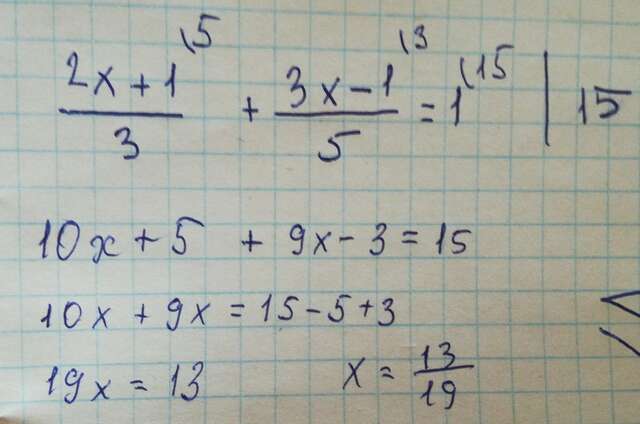 (2x + 1)/3 \5 + (3x - 1)/5 \3 = 1 \15 | 15
10x + 5 + 9x - 3 = 15
10x + 9x = 15 - 5 + 3
19x = 13 x = 13/19